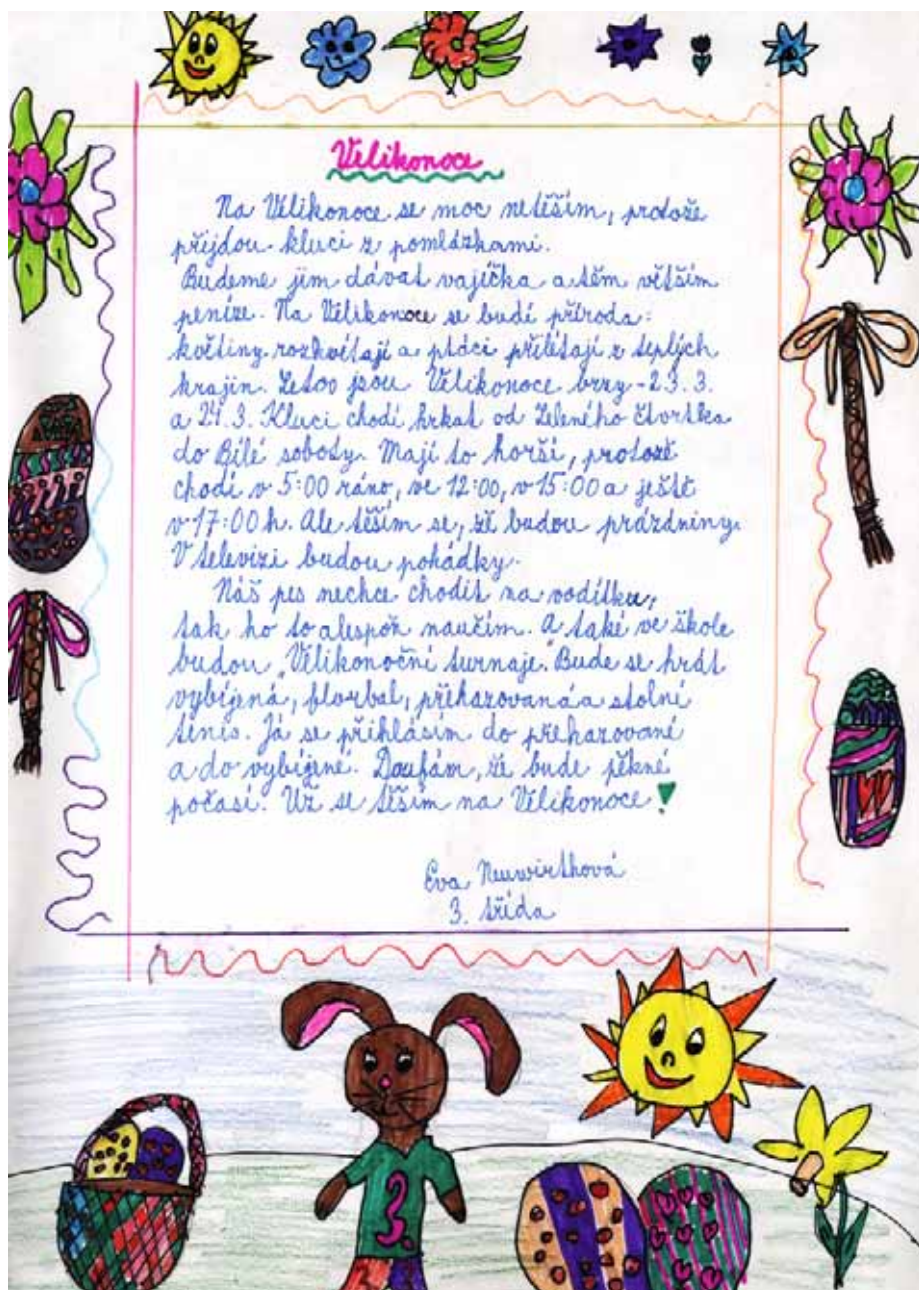 Velikonoce
Na Velikonoce se moc netěším, protože
přijdou kluci z pomlázkami.
Budeme jim dávat vajíčka a těm větším
peníze. Na Velikonoce se budí příroda:
květiny rozkvétají a ptáci přilétají z teplých
krajin. Letos jsou Velikonoce brzy - 23.3.
a 24.3. Kluci chodí hrkat od Zeleného čtvrtka
do Bílé soboty. Mají to horší, protože
chodí v 5:00 ráno, ve 12:00, v 15:00 a ještě
v 17:00 h. Ale těším se, že budou prázdniny.
V televizi budou pohádky.
Náš pes nechce chodit na vodítku,
tak ho to alespoň naučím. A také ve škole
budou „Velikonoční turnaje". Bude se hrát
vybíjená, florbal, přehazovaná a stolní
tenis. Já se přihlásím do přehazované
a do vybíjené. Doufám, že bude pěkné
počasí. Už se těším na Velikonoce!
Eva Neuwirthová
3. třída
3.